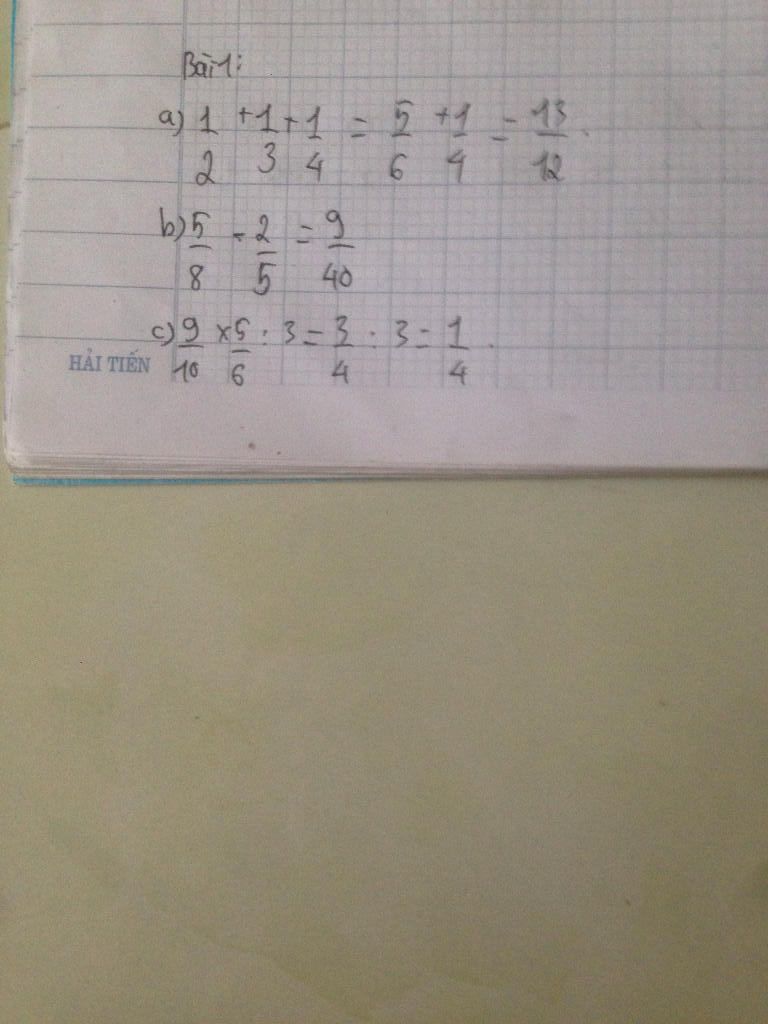 Bài 1:
a) 1/2 + 1/3 + 1/4 = 5/6 + 1/4 = 13/12.
b) 5/8 - 2/5 = 9/40
c) 9/10 x 5/6 : 3 = 3/4 : 3 = 1/4.
HẢI TIẾN